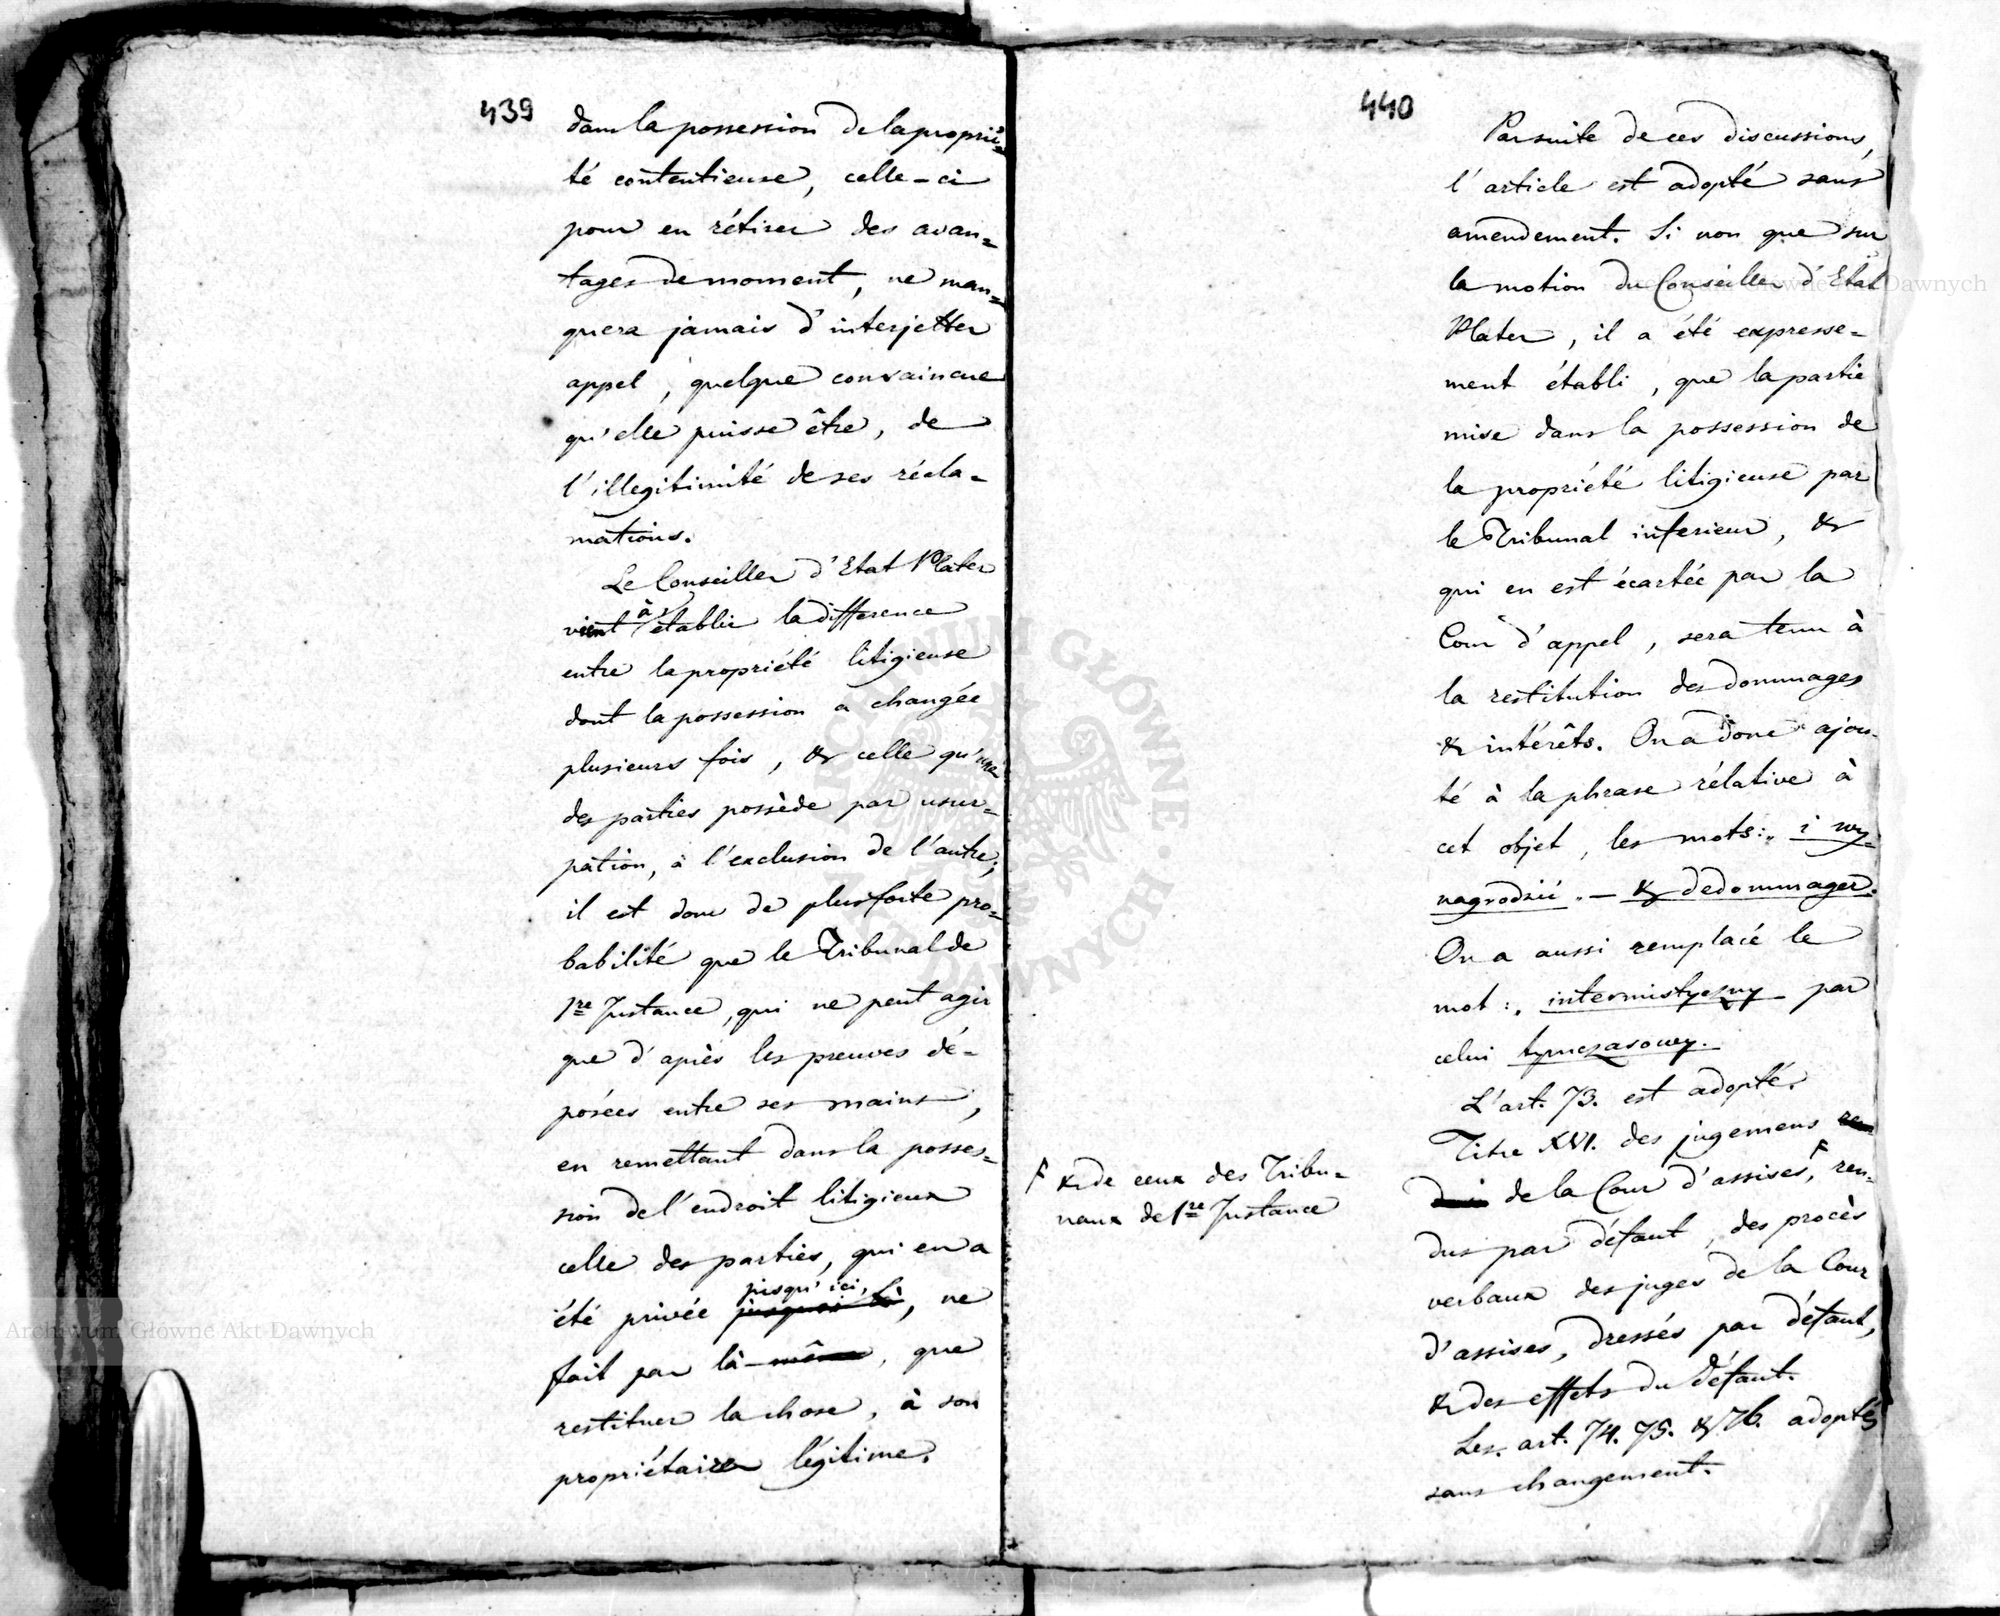 439
dans la possession de la proprié=
té contentieuse, celle-ci
pour en rétirer des avan=
tages de moment, ne man=
quera jamais d'interjetter
appel, quelque convaincue
qu'elle puisse être, de
l'illegitimité de ses récla=
mations.
Le Conseiller d'Etat Plater
vient à établir la difference
entre la propriété litigieuse
dont la possession a changée
plusieurs fois, & celle qu'une
des parties possède par usur=
pation, à l'exclusion de l'autre;
il est donc de plus forte pro=
babilité que le Tribunal de
1re Instance, qui ne peut agir
que d'après les preuves dé=
posées entre ses mains,
en remettant dans la posses=
sion de l'endroit litigieux
celle des parties, qui en a
jusqu'ici,
été privée jusques là, ne
fait par là même, que
restituer la chose, à son
propriétaire légitime.
440
Par suite de ces discussions,
l'article est adopté sans
amendement. Si non que sur
la motion du Conseiller d'Etat
Plater, il a été expresse=
ment établi, que la partie
mise dans la possession de
la propriété litigieuse par
le Tribunal inferieur, &
qui en est écartée par la
Cour d'appel, sera tenu à
la restitution des dommages
& intérêts. On a donc ajou=
té à la phrase rélative à
cet objet, les mots: „ i wy=
nagrodzić „ — & dedommager.
On a aussi remplacé le
mot: „ intermistyczny par
celui tymczasowy.
L'art. 73. est adopté.
Titre XVI. des jugemens ren
dus de la Cour d'assises, F ren=
dus par défaut, des procès
verbaux des juges de la Cour
d'assises, dressés par défaut,
& des effets du défaut.
Les art. 74. 75. & 76. adoptés
sans changement.
F & de ceux des Tribu=
naux de 1re Instance
Archiwum Główne Akt Dawnych
Archiwum Główne Akt Dawnych
ARCHIWUM GŁÓWNE AKT DAWNYCH